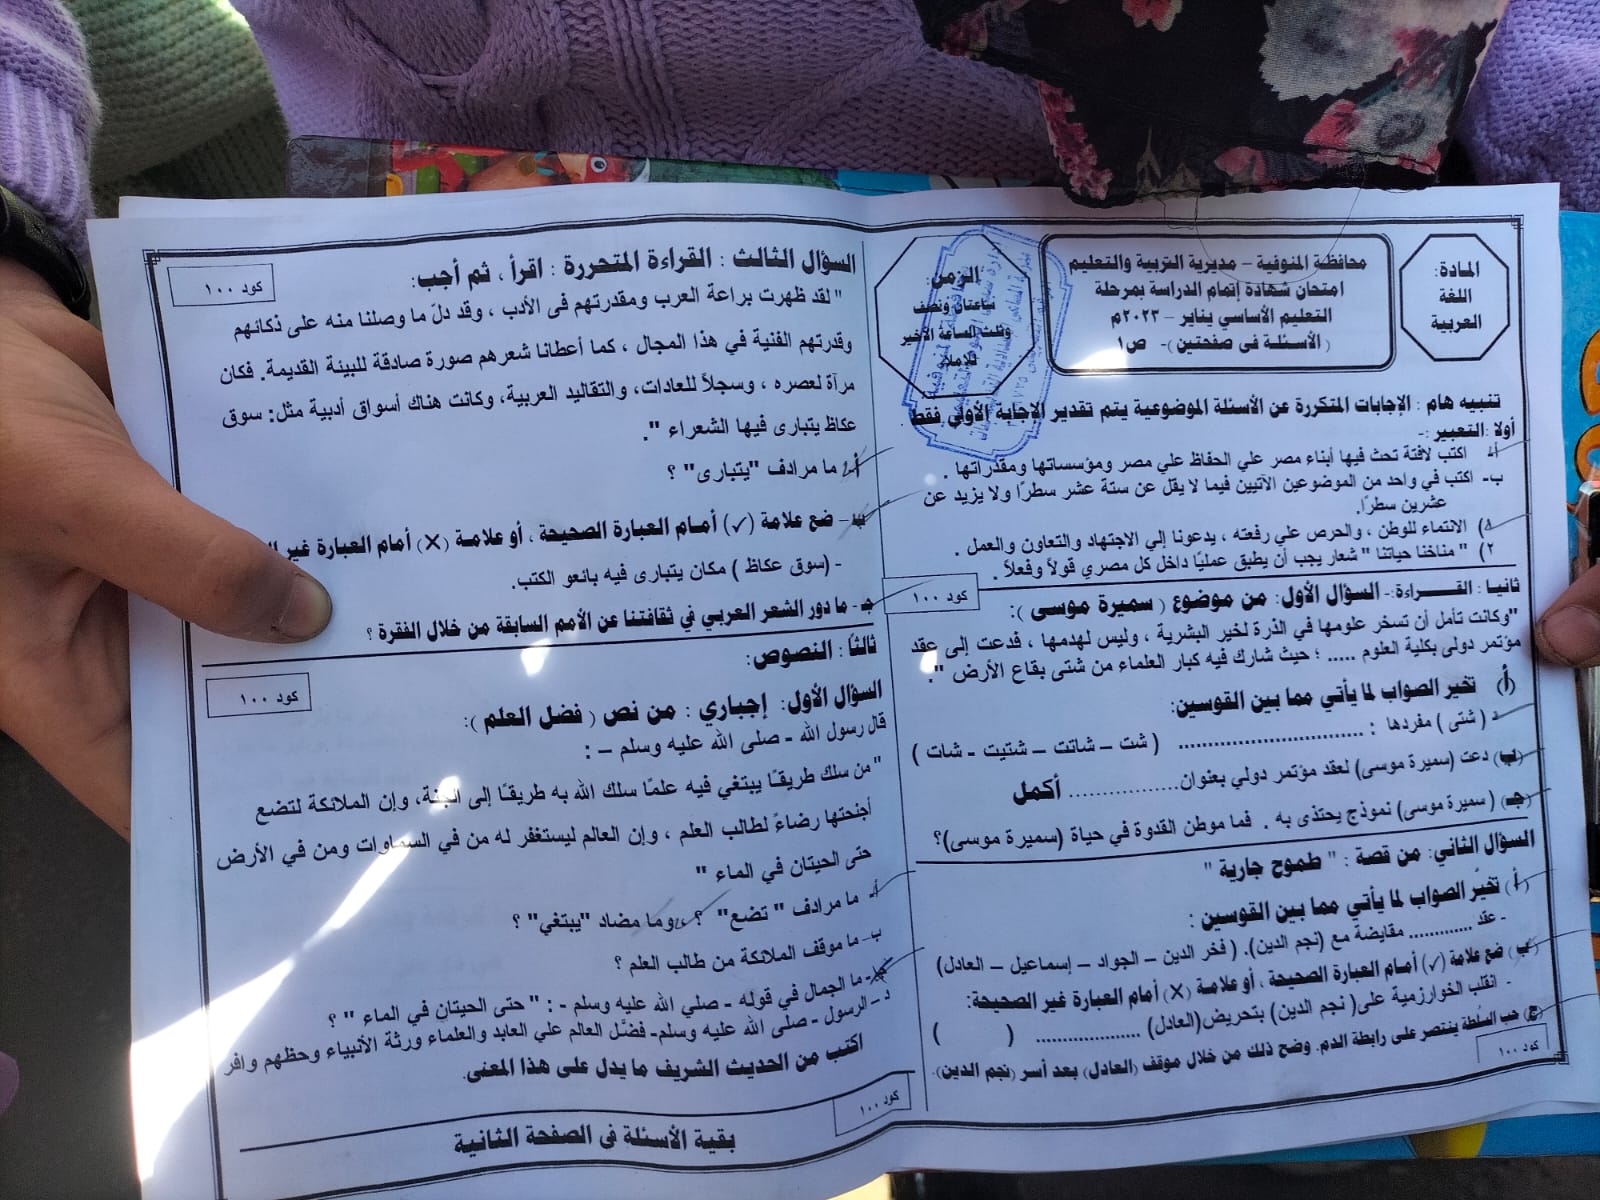 المادة:
اللغة
العربية
محافظة المنوفية – مديرية التربية والتعليم
امتحان شهادة إتمام الدراسة بمرحلة
التعليم الأساسي يناير – ٢٠٢٣م
( الأسئلة فى صفحتين )- ص١
الزمن:
ساعتان ونصف
وثلث الساعة الأخير
للإملاء
تنبيه هام : الإجابات المتكررة عن الأسئلة الموضوعية يتم تقدير الإجابة الأولى فقط .
أولا :التعبير :-
أ- اكتب لافتة تحث فيها أبناء مصر علي الحفاظ علي مصر ومؤسساتها ومقدراتها .
ب- اكتب في واحد من الموضوعين الآتيين فيما لا يقل عن ستة عشر سطرًا ولا يزيد عن
عشرين سطرًا.
١) الانتماء للوطن ، والحرص علي رفعته ، يدعونا إلي الاجتهاد والتعاون والعمل .
٢) " مناخنا حياتنا " شعار يجب أن يطبق عمليًا داخل كل مصري قولاً وفعلاً .
كود ١٠٠
ثانيا : القـــراءة:- السؤال الأول: من موضوع ( سميرة موسى ):
"وكانت تأمل أن تسخر علومها في الذرة لخير البشرية ، وليس لهدمها ، فدعت إلى عقد
مؤتمر دولى بكلية العلوم ..... ؛ حيث شارك فيه كبار العلماء من شتى بقاع الأرض ".
(أ) تخير الصواب لما يأتي مما بين القوسين:
( شتى ) مفردها : ............................... ( شت – شاتت – شتيت - شات )
(ب) دعت (سميرة موسى) لعقد مؤتمر دولي بعنوان................... أكمل
(جـ) ( سميرة موسى) نموذج يحتذى به . فما موطن القدوة في حياة (سميرة موسى)؟
السؤال الثاني: من قصة : " طموح جارية "
(أ) تخيّر الصواب لما يأتي مما بين القوسين :
- عقد ............ مقايضة مع (نجم الدين). ( فخر الدين – الجواد – إسماعيل – العادل)
(ب) ضع علامة (✓) أمام العبارة الصحيحة ، أو علامة (×) أمام العبارة غير الصحيحة:
- انقلب الخوارزمية على( نجم الدين) بتحريض(العادل) ................... ( )
(ج) حب السلطة ينتصر على رابطة الدم. وضح ذلك من خلال موقف (العادل) بعد أسر (نجم الدين).
كود ١٠٠
السؤال الثالث : القراءة المتحررة : اقرأ ، ثم أجب:
كود ١٠٠
" لقد ظهرت براعة العرب ومقدرتهم فى الأدب ، وقد دلّ ما وصلنا منه على ذكائهم
وقدرتهم الفنية في هذا المجال ، كما أعطانا شعرهم صورة صادقة للبيئة القديمة. فكان
مرآة لعصره ، وسجلاً للعادات، والتقاليد العربية، وكانت هناك أسواق أدبية مثل: سوق
عكاظ يتبارى فيها الشعراء ".
أ- ما مرادف "يتبارى" ؟
ب- ضع علامة (✓) أمام العبارة الصحيحة ، أو علامة (×) أمام العبارة غير
- (سوق عكاظ ) مكان يتبارى فيه بائعو الكتب.
جـ- ما دور الشعر العربي في ثقافتنا عن الأمم السابقة من خلال الفقرة ؟
ثالثا : النصوص:
كود ١٠٠
السؤال الأول: إجباري : من نص ( فضل العلم ):
قال رسول الله - صلى الله عليه وسلم – :
"من سلك طريقًا يبتغي فيه علمًا سلك الله به طريقًا إلى الجنة، وإن الملائكة لتضع
أجنحتها رضاءً لطالب العلم ، وإن العالم ليستغفر له من في السماوات ومن في الأرض
حتى الحيتان في الماء "
أ- ما مرادف " تضع" ؟ ، وما مضاد "يبتغي" ؟
ب- ما موقف الملائكة من طالب العلم ؟
جـ- ما الجمال في قوله - صلي الله عليه وسلم - : " حتى الحيتان في الماء " ؟
د – الرسول - صلى الله عليه وسلم- فضّل العالم علي العابد والعلماء ورثة الأنبياء وحظهم وافر
اكتب من الحديث الشريف ما يدل على هذا المعنى.
كود ١٠٠
بقية الأسئلة فى الصفحة الثانية